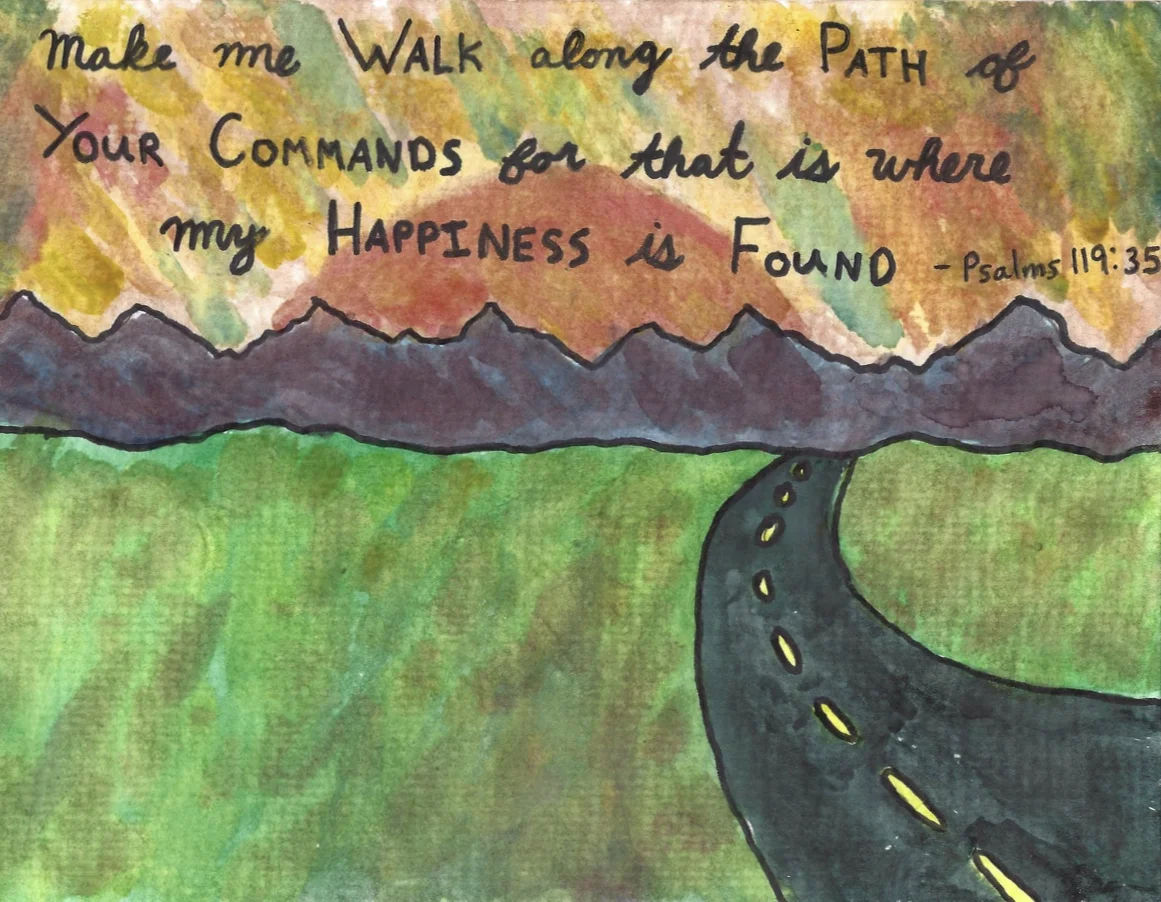 Make me WALK along the PATH of
YOUR COMMANDS for that is where
my HAPPINESS is FOUND - Psalms 119:35